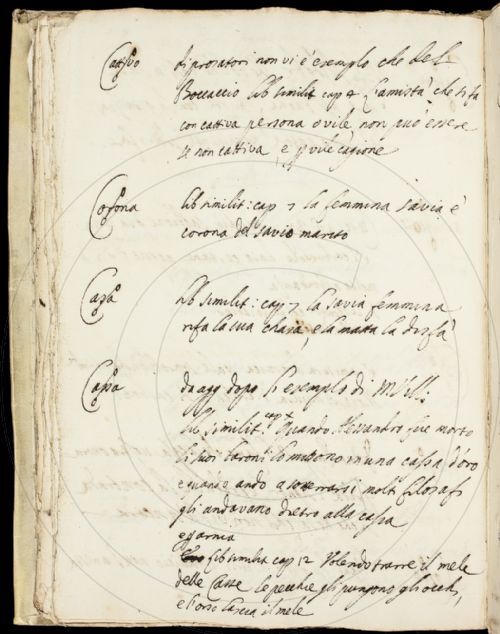 Cattivo di prosatori non vi è esempio che del
Boccaccio lib similit cap 4 L'amistà che si fa
con cattiva persona o vile non può essere
se non cattiva, e p vile cagione
Corona lib similit: cap 7 la femmina savia è
corona del savio marito
Casa lib similit: cap 7 la savia femmina
rifa la sua chasa, e la matta la disfà
Cassa da agg dopo l'esempio di M: Vill:
lib similit. cap Quando Alessandro fue morto
li suoi baroni lo misono in una cassa d'oro
e quando andò a sotterrarsi molti filosafi
gli andavano dietro alla cassa
lib similit cap 12 Volendo trarre il mele
delle casse le pecchie gli pungono gli occhi,
e l'orso lascia il mele